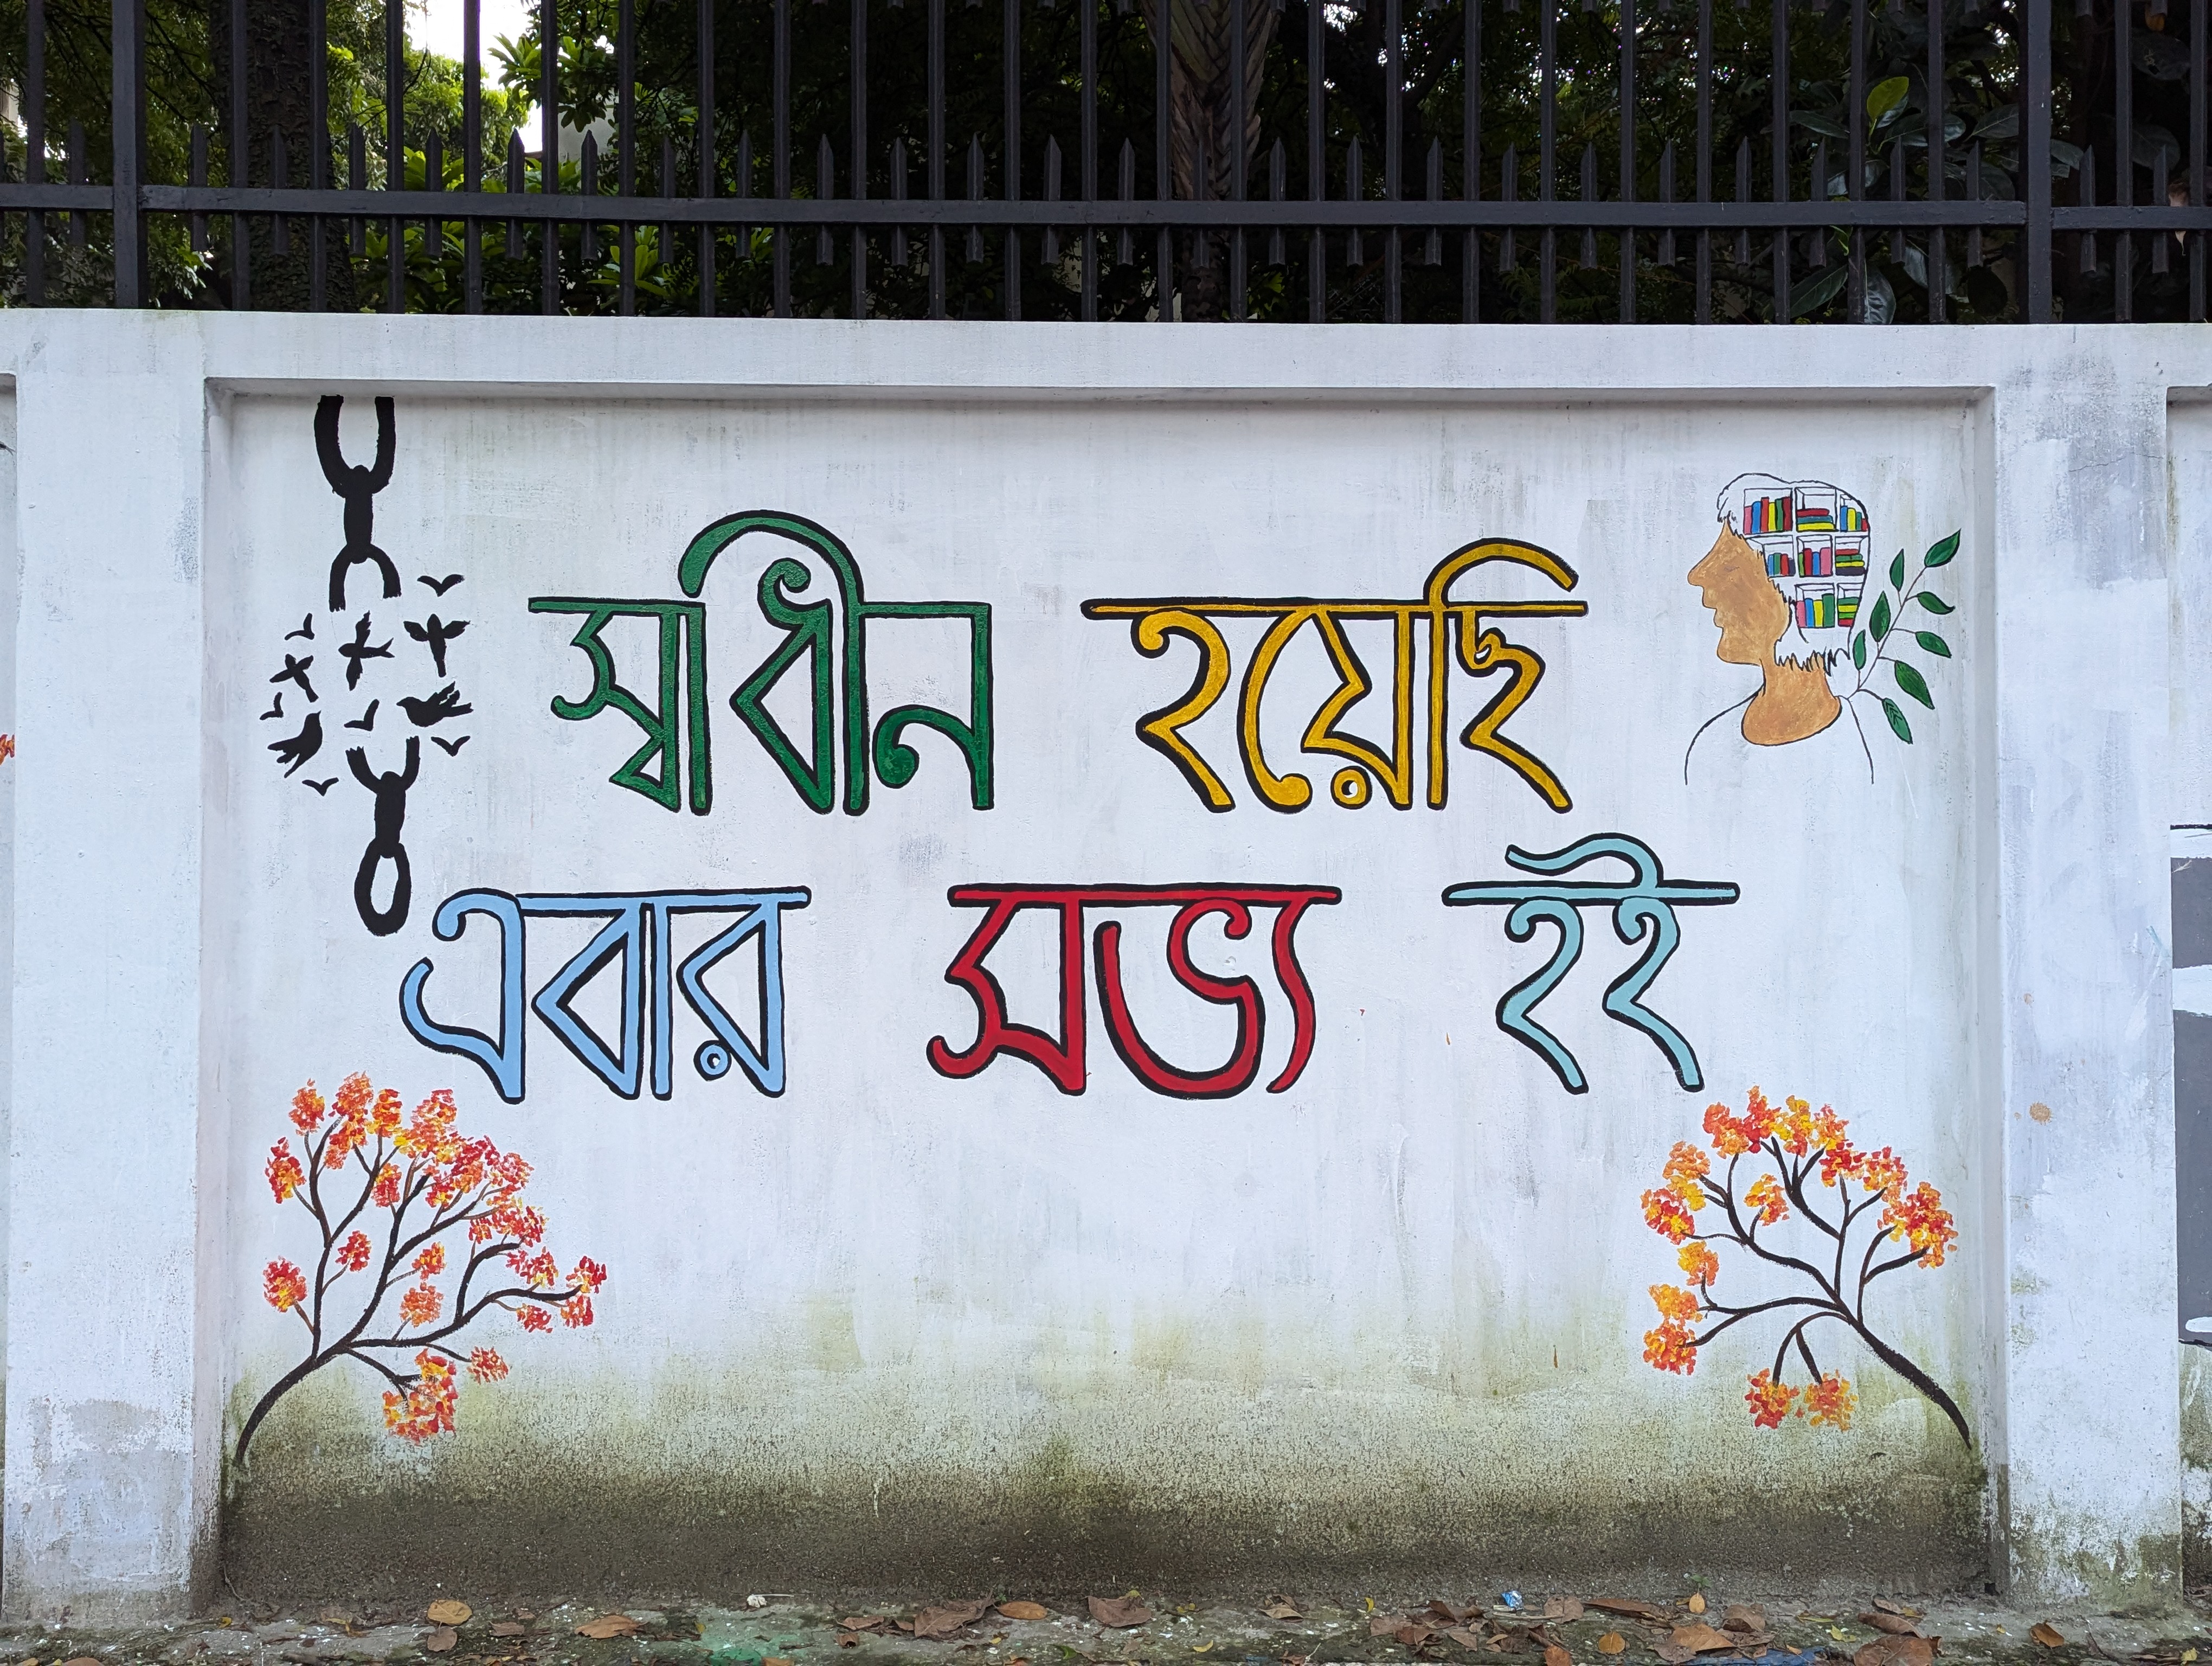 স্বাধীন হয়েছি
এবার সভ্য হই